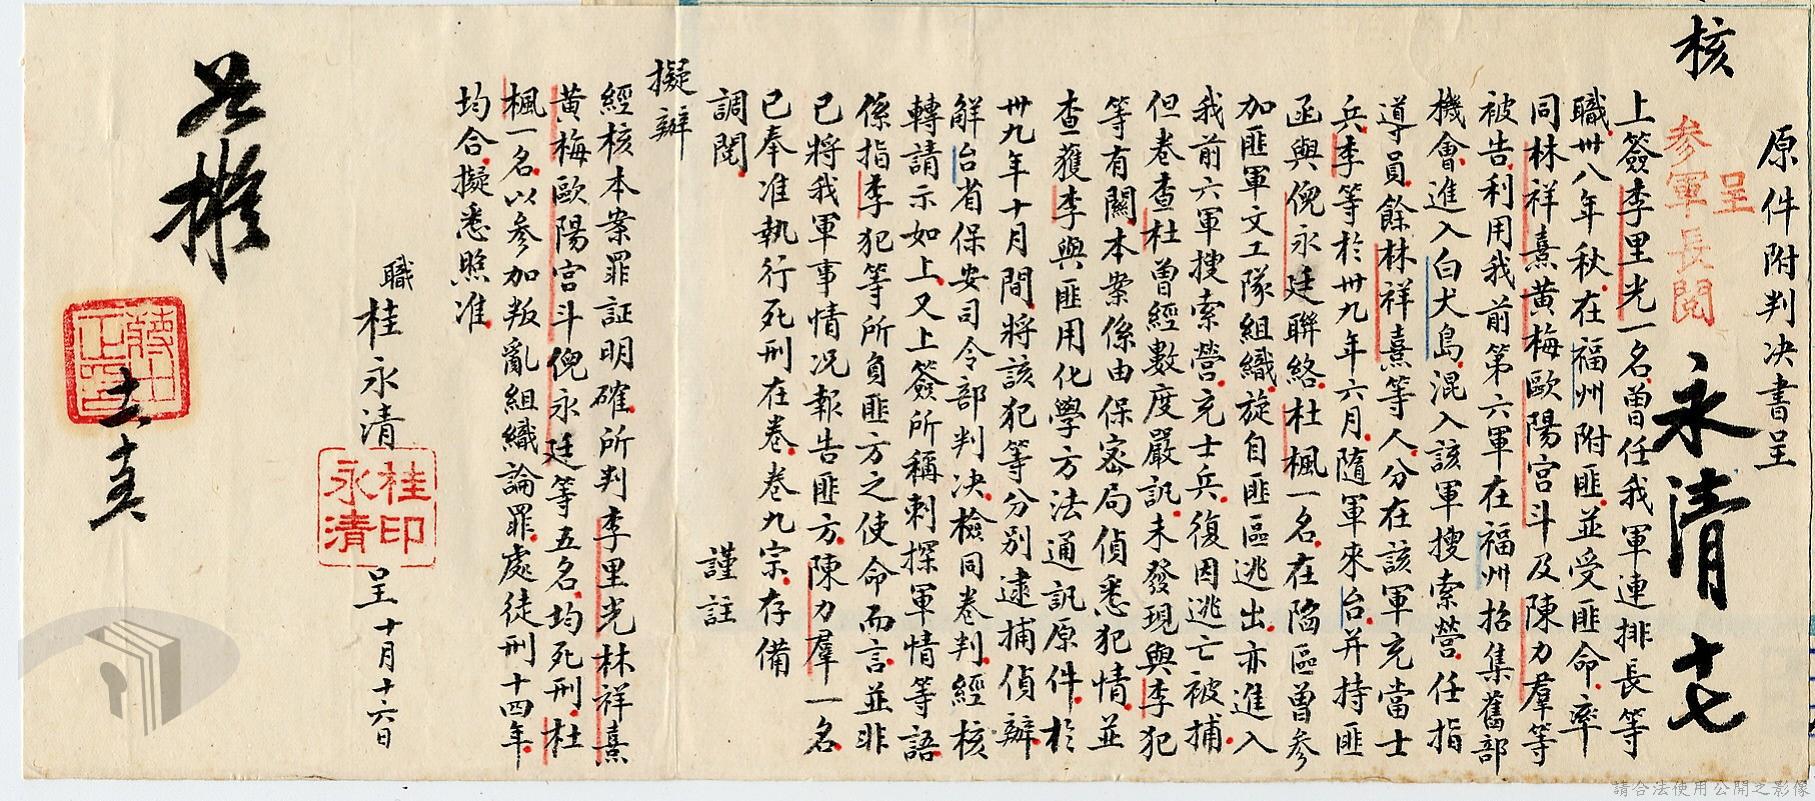 核
原件附判决書呈
呈
參軍長閱
永清 十七
上簽李里光一名曾任我軍連排長等
職卅八年秋在福州附匪並受匪命率
同林祥熹黃梅歐陽宮斗及陳力羣等
被告利用我前第六軍在福州招集舊部
機會進入白犬島混入該軍搜索營任指
導員餘林祥熹等人分在該軍充當士
兵李等於卅九年六月隨軍來台并持匪
函與倪永廷聯絡杜楓一名在陷區曾參
加匪軍文工隊組織旋自匪區逃出亦進入
我前六軍搜索營充士兵復因逃亡被捕
但卷查杜曾經數度嚴訊未發現與李犯
等有關本案係由保密局偵悉犯情並
查獲李與匪用化學方法通訊原件於
卅九年十月間將該犯等分別逮捕偵辦
解台省保安司令部判决檢同卷判經核
轉請示如上又上簽所稱刺探軍情等語
係指李犯等所負匪方之使命而言並非
已將我軍事情况報告匪方陳力羣一名
已奉准執行死刑在卷卷九宗存備
調閱
謹註
擬辦
經核本案罪証明確所判李里光林祥熹
黃梅歐陽宮斗倪永廷等五名均死刑杜
楓一名以參加叛亂組織論罪處徒刑十四年
均合擬悉照准
職
桂永清
桂永清印
呈 十月十六日
如擬
蔣中正印
請合法使用公開之影像